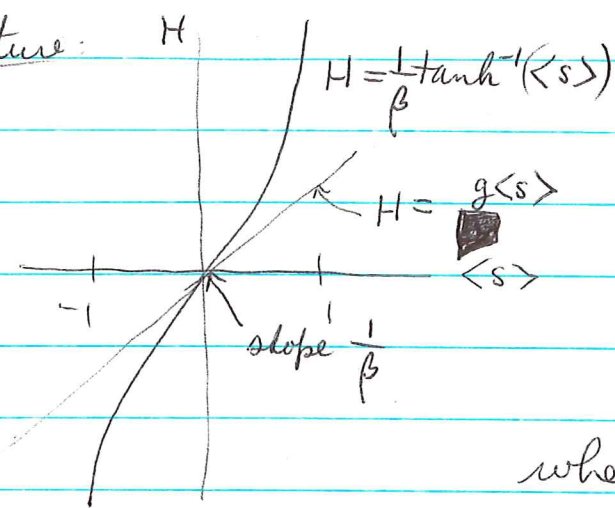 ture:
H
H = 1/β tanh⁻¹(<s>)
H = g<s>
<s>
-1
1
slope 1/β
whe